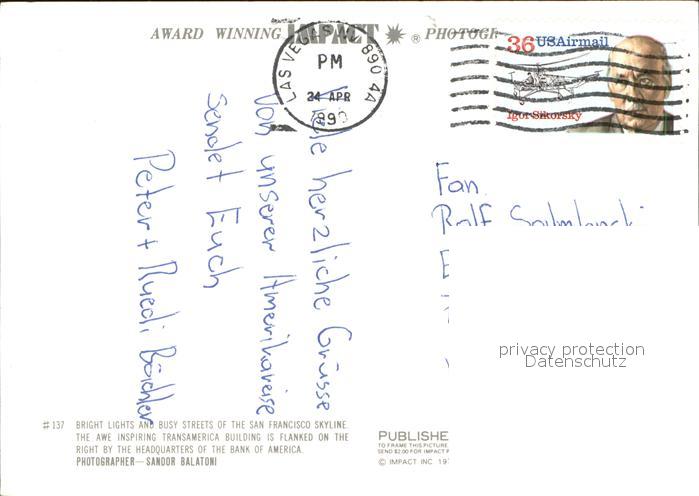 AWARD WINNING IMPACT PHOTOGR
LAS VEGAS, NV 890 4A
PM
24 APR
36 USAirmail
Igor Sikorsky
Viele herzliche Grüsse
von unserer Amerikareise
sendet Euch
Peter + Ruedi Bächler
Fam.
Rolf
privacy protection
Datenschutz
#137 BRIGHT LIGHTS AND BUSY STREETS OF THE SAN FRANCISCO SKYLINE.
THE AWE INSPIRING TRANSAMERICA BUILDING IS FLANKED ON THE
RIGHT BY THE HEADQUARTERS OF THE BANK OF AMERICA.
PHOTOGRAPHER—SANDOR BALATONI
PUBLISHE
TO FRAME THIS PICTURE
SEND $2.00 FOR IMPACT F
© IMPACT INC 19